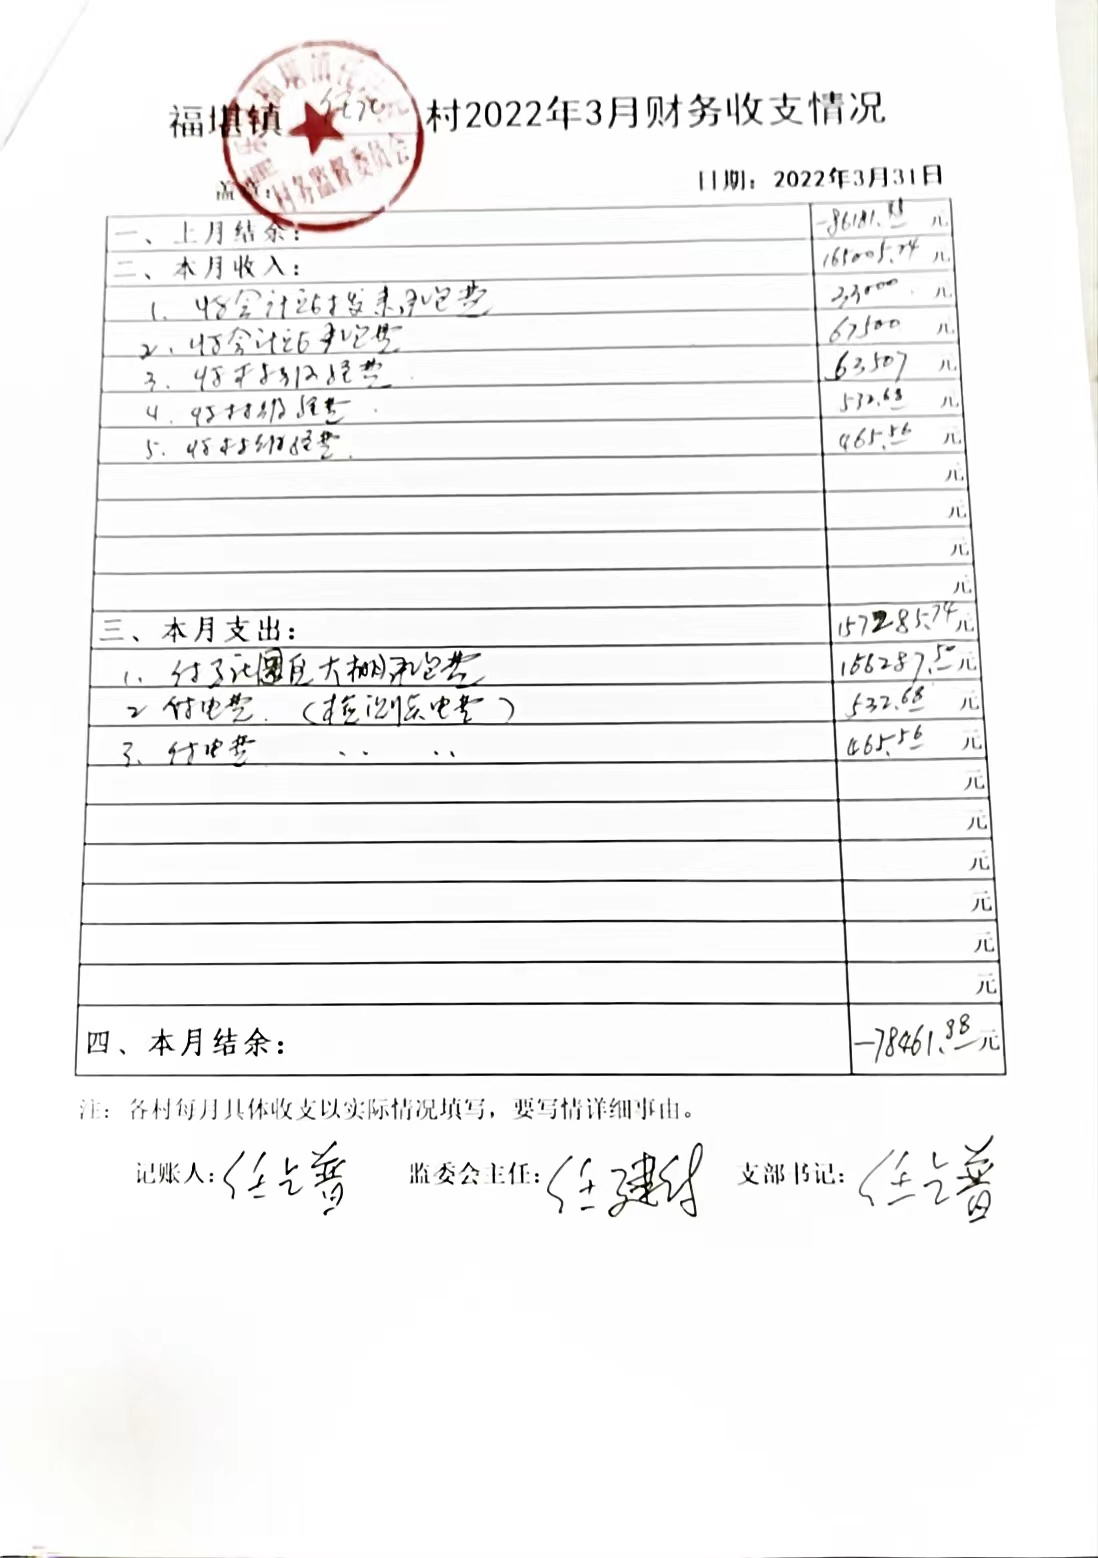 福堪镇 任沟 村2022年3月财务收支情况
村务监督委员会
盖章: 日期：2022年3月31日
一、上月结余: -86181.88 元
二、本月收入: 165005.74 元
1. 收会计站 承包费 33000 元
2. 收会计站承包费 67500 元
3. 收村级经费 63507 元
4. 收村级经费 532.68 元
5. 收村级经费 465.56 元
元
元
元
元
三、本月支出: 157285.74 元
1. 付 大棚承包费 156287.50 元
2 付电费.（检测点电费） 532.68 元
3. 付电费 〃 〃 465.56 元
元
元
元
元
元
元
四、本月结余: -78461.88 元
注：各村每月具体收支以实际情况填写，要写情详细事由。
记账人: 任 普 监委会主任: 任建村 支部书记: 任 普